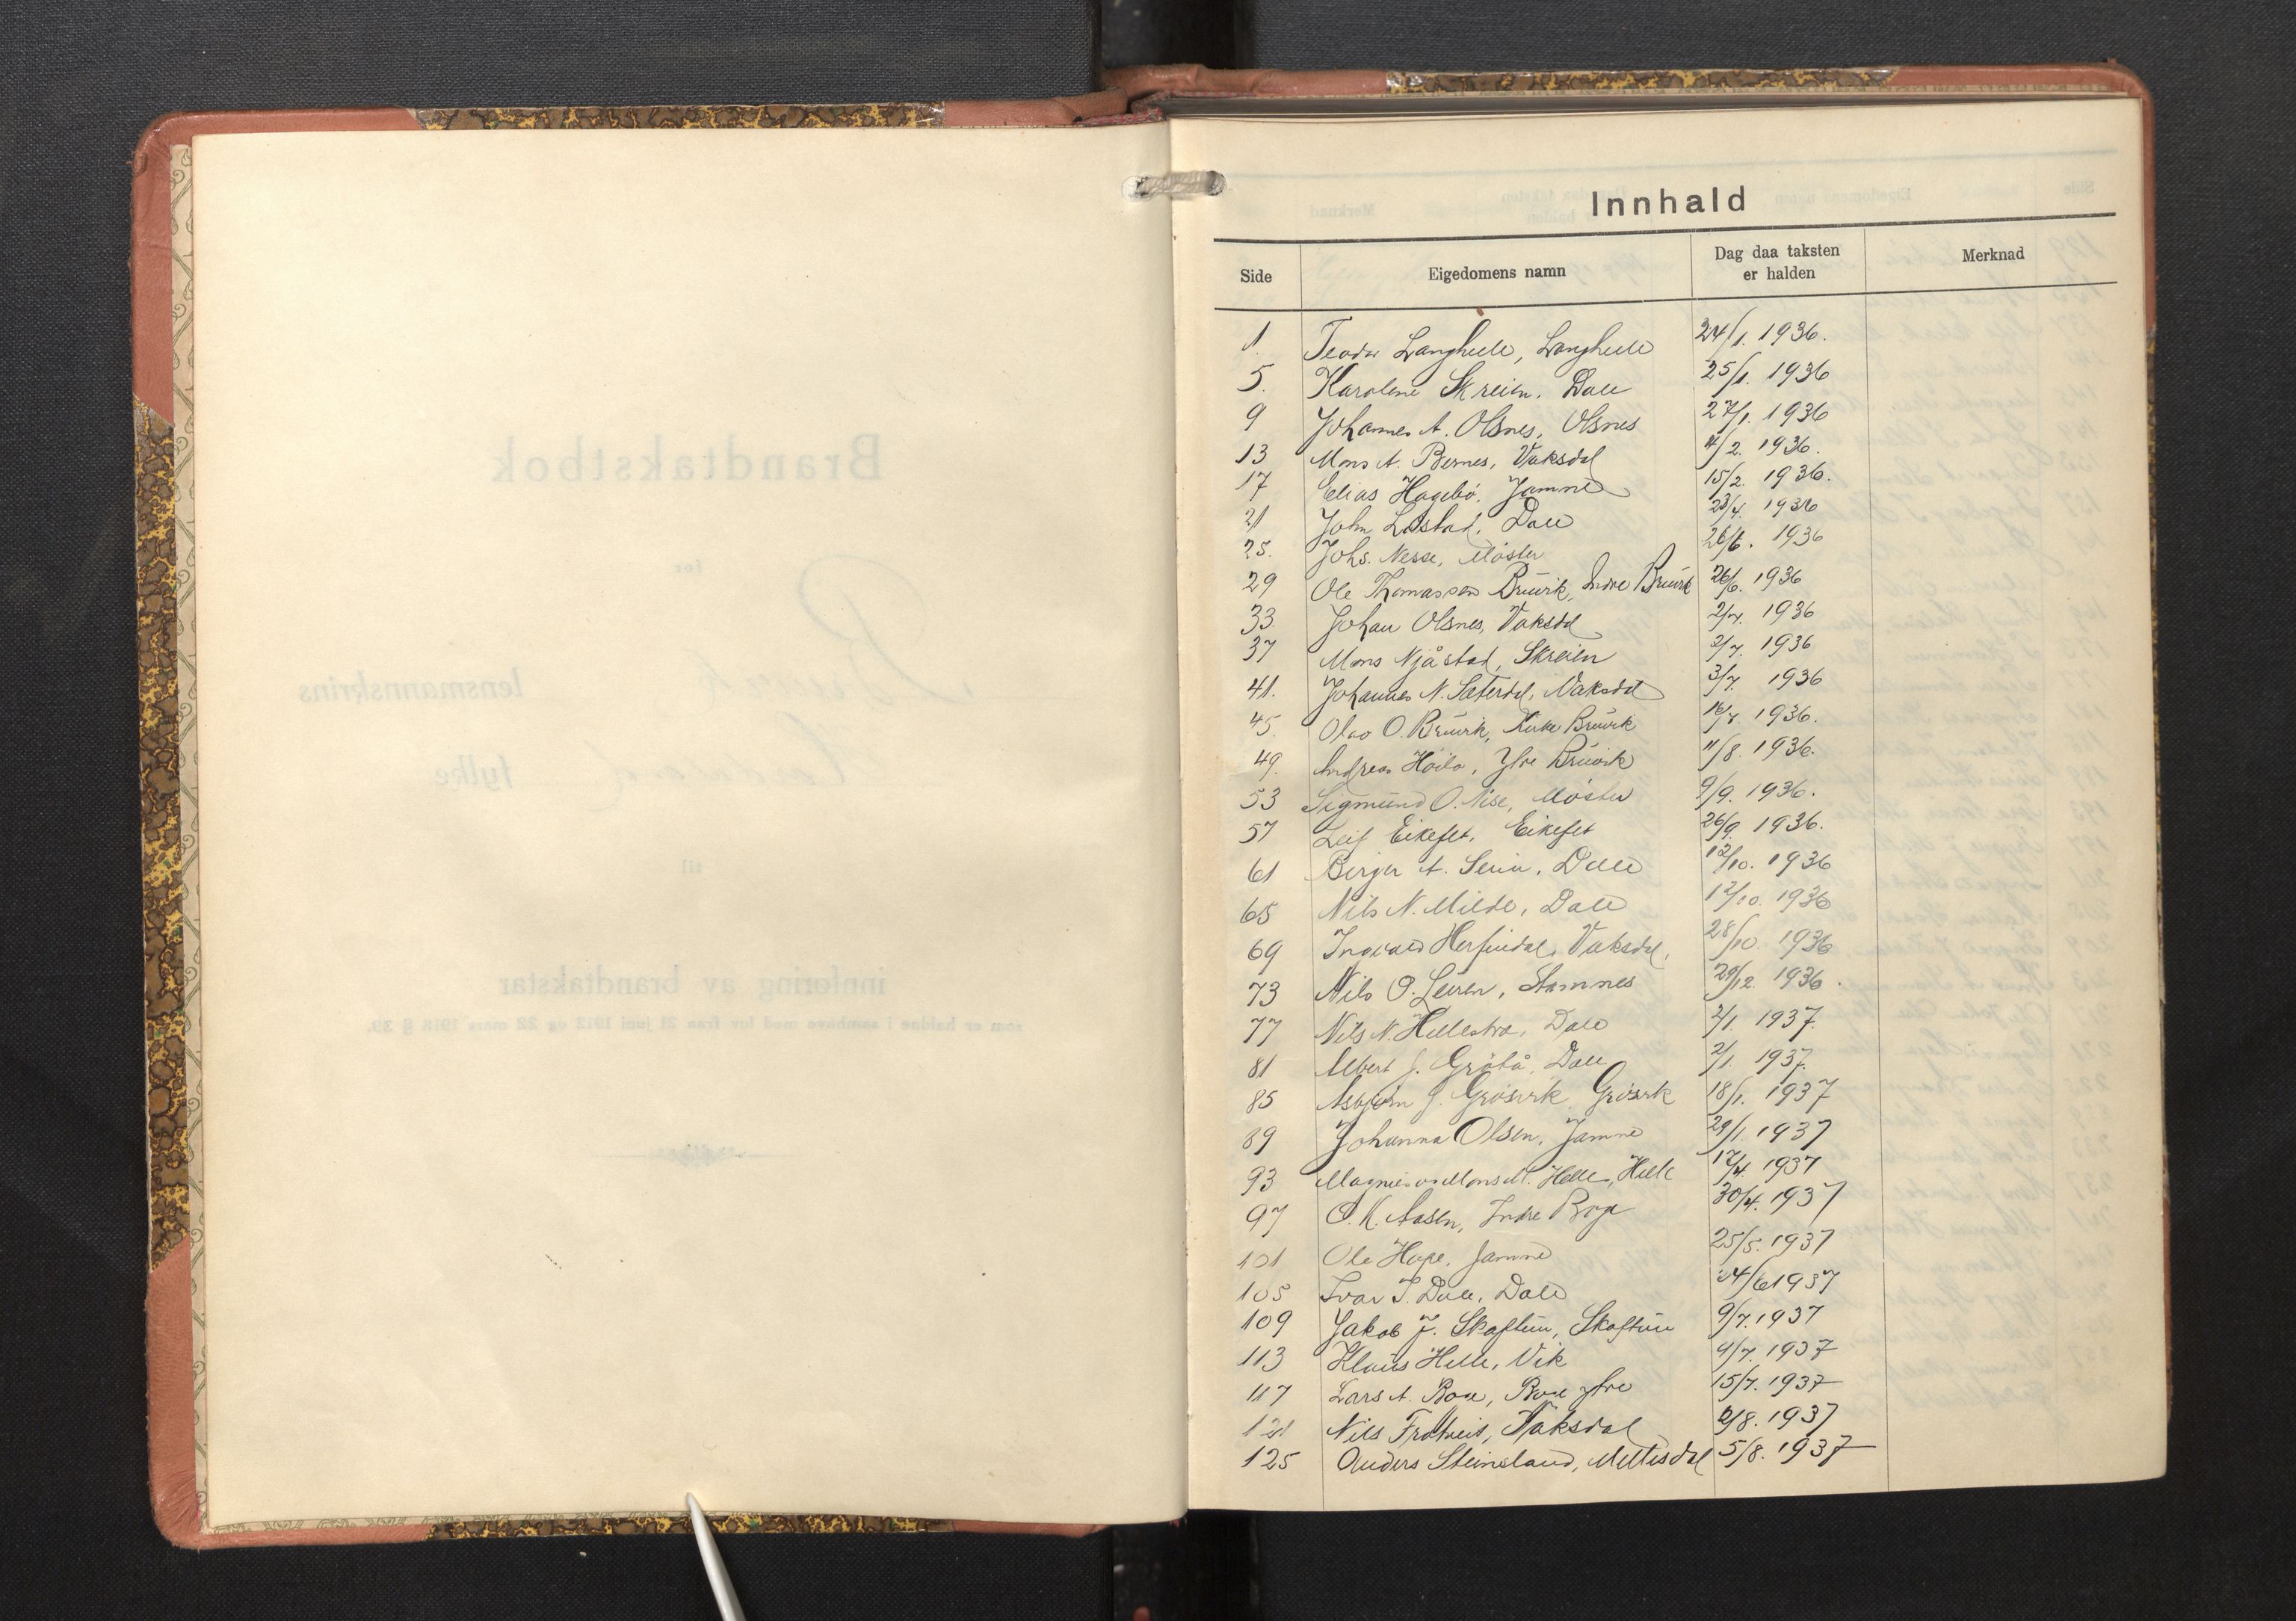 Innhald
Side Eigedomens namn Dag daa taksten er halden Merknad
1 Teodor Langhelle, Langhelle 24/1. 1936.
5. Karolene Skreien. Dale 25/1. 1936
9 Johannes A. Olsnes, Olsnes 27/1. 1936
13 Mons A. Bernes, Vaksdal 4/2. 1936.
17 Elias Hagebö. Jamne 15/2. 1936.
21 John Lastad, Dale 23/4. 1936
25. Johs. Nesse, Möster 26/6. 1936
29 Ole Thomassen Bruvik, Indre Bruvik 26/6. 1936
33. Johan Olsnes, Vaksdal 2/7. 1936
37 Mons Njåstad, Skreien 2/7. 1936
41. Johannes N. Säterdal, Vaksdal 3/7. 1936
45. Olav O. Bruvik, Kirke Bruvik 16/7. 1936.
49. Andreas Höilo, Ytre Bruvik 11/8. 1936.
53 Sigmund O. Nese, Möster 9/9. 1936.
57 Leif Eikefet, Eikefet 26/9. 1936.
61 Birger A. Dale 12/10. 1936
65 Nils N. Milde, Dale 12/10. 1936
69 Ingvald Herfindal, Vaksdal, 28/10. 1936
73 Nils O. Leiren, Stamnes 29/12. 1936.
77 Nils N. Hellestræ, Dale 2/1. 1937.
81 Albert J. Dale 2/1. 1937.
85 Asbjörn J. Grösvik, Grösvik 18/1. 1937
89 Johanna Olsen, Jamne 29/1. 1937
93 Magnus og Mons M. Helle, Helle 12/4. 1937
97 O. K. Aasen, Indre Boge 30/4. 1937
101 Ole Hope, Jamne 25/5. 1937
105 Ivar I. Dale, Dale 24/6 1937
109 Jakob J. Skaftun, Skaftun 9/7. 1937
113 Klaus Helle, Vik 9/7. 1937
117 Lars A. Boge, Boge ytre 15/7. 1937
121 Nils Vaksdal 2/8. 1937
125 Anders Steinsland, 5/8. 1937